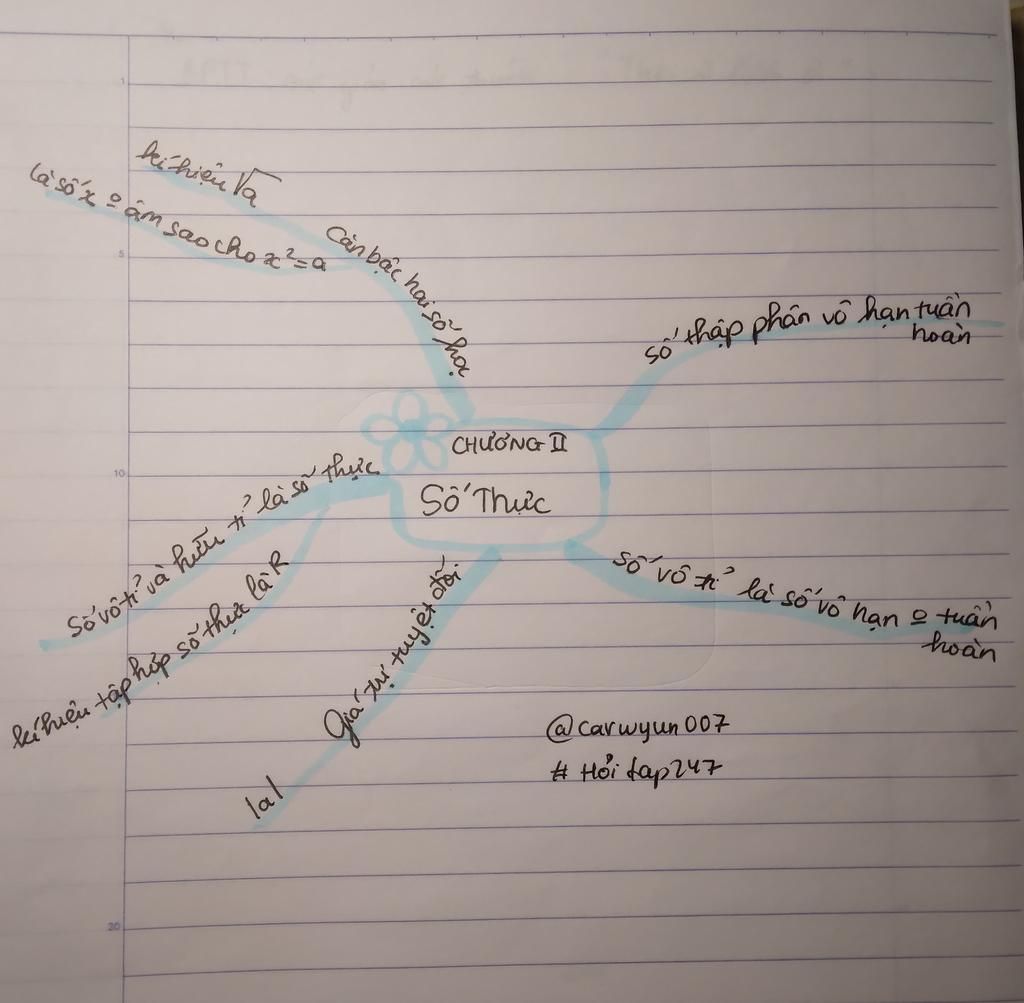 kí hiệu √a
là số x o âm sao cho x²=a
Căn bậc hai số học
số thập phân vô hạn tuần
hoàn
CHƯƠNG II
Số Thực
Số vô tỉ và hữu tỉ là số thực
kí hiệu tập hợp số thực là R
Giá trị tuyệt đối
|a|
Số vô tỉ là số vô hạn o tuần
hoàn
@carwyun007
# Hỏi đap247
10
20
5
1